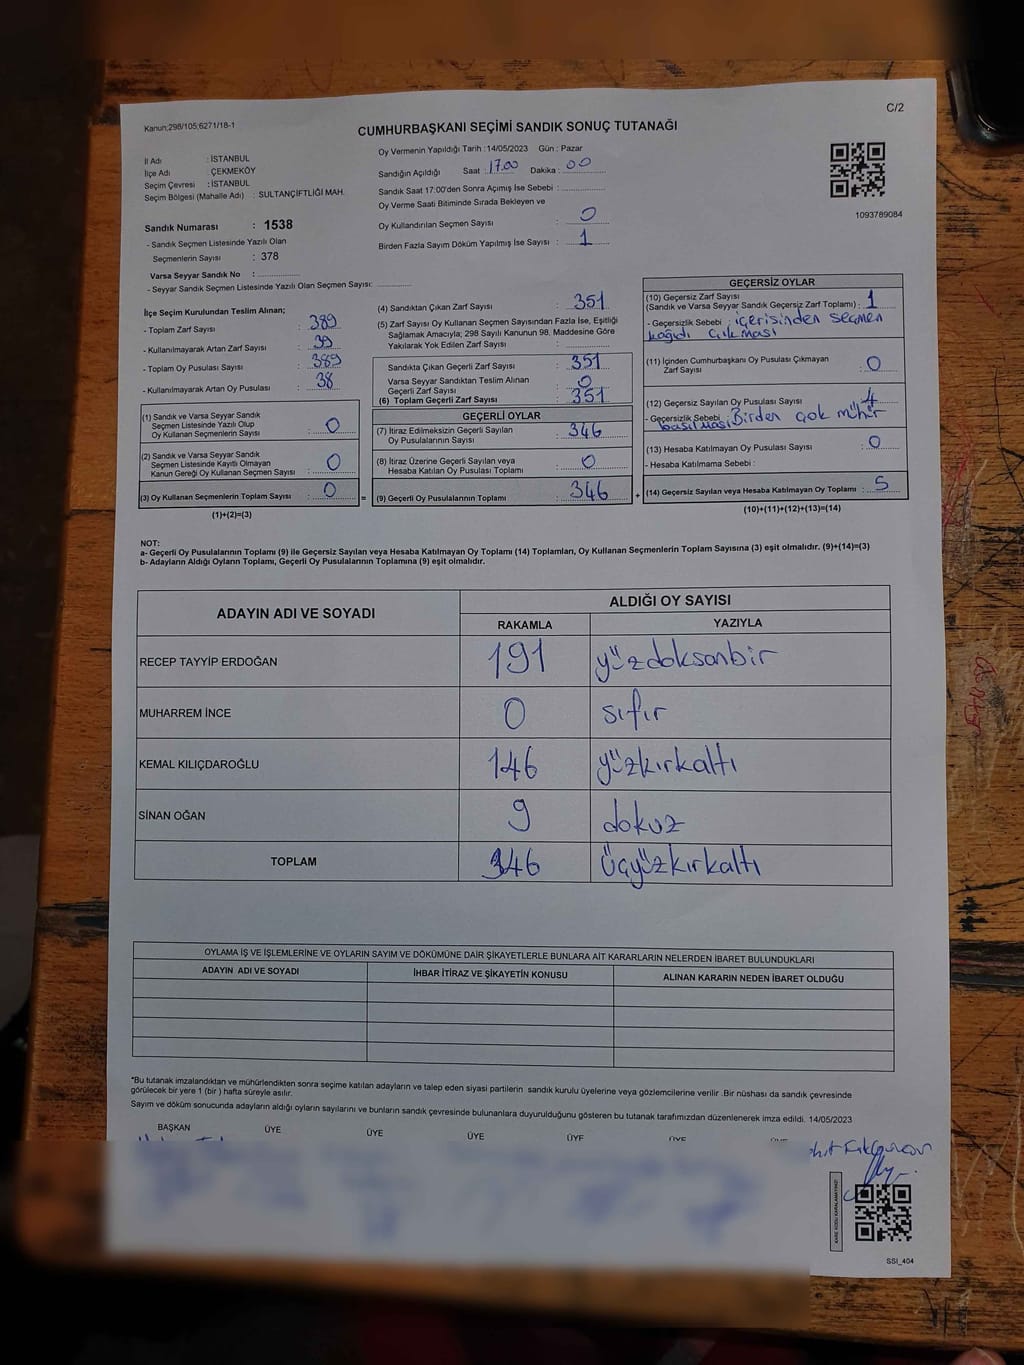 C/2
Kanun;298/105;6271/18-1
CUMHURBAŞKANI SEÇİMİ SANDIK SONUÇ TUTANAĞI
İl Adı : İSTANBUL
İlçe Adı : ÇEKMEKÖY
Seçim Çevresi : İSTANBUL
Seçim Bölgesi (Mahalle Adı) : SULTANÇİFTLİĞİ MAH.
Sandık Numarası : 1538
- Sandık Seçmen Listesinde Yazılı Olan
Seçmenlerin Sayısı : 378
Varsa Seyyar Sandık No :
- Seyyar Sandık Seçmen Listesinde Yazılı Olan Seçmen Sayısı:
Oy Vermenin Yapıldığı Tarih :14/05/2023 Gün : Pazar
Sandığın Açıldığı Saat : 17.00 Dakika : 00
Sandık Saat 17:00'den Sonra Açımış İse Sebebi :
Oy Verme Saati Bitiminde Sırada Bekleyen ve
Oy Kullandırılan Seçmen Sayısı : 0
Birden Fazla Sayım Döküm Yapılmış İse Sayısı : 1
1093789084
İlçe Seçim Kurulundan Teslim Alınan;
- Toplam Zarf Sayısı : 389
- Kullanılmayarak Artan Zarf Sayısı : 39
- Toplam Oy Pusulası : 389
- Kullanılmayarak Artan Oy Pusulası : 38
(1) Sandık ve Varsa Seyyar Sandık
Seçmen Listesinde Yazılı Olup
Oy Kullanan Seçmenlerin Sayısı : 0
(2) Sandık ve Varsa Seyyar Sandık
Seçmen Listesinde Kayıtlı Olmayan
Kanun Gereği Oy Kullanan Seçmen Sayısı : 0
(3) Oy Kullanan Seçmenlerin Toplam Sayısı : 0 =
(1)+(2)=(3)
(4) Sandıktan Çıkan Zarf Sayısı : 351
(5) Zarf Sayısı Oy Kullanan Seçmen Sayısından Fazla İse, Eşitliği
Sağlamak Amacıyla; 298 Sayılı Kanunun 98. Maddesine Göre
Yakılarak Yok Edilen Zarf Sayısı :
Sandıkta Çıkan Geçerli Zarf Sayısı : 351
Varsa Seyyar Sandıktan Teslim Alınan
Geçerli Zarf Sayısı : 0
(6) Toplam Geçerli Zarf Sayısı : 351
GEÇERLİ OYLAR
(7) İtiraz Edilmeksizin Geçerli Sayılan
Oy Pusulalarının Sayısı : 346
(8) İtiraz Üzerine Geçerli Sayılan veya
Hesaba Katılan Oy Pusulası Toplamı : 0
(9) Geçerli Oy Pusulalarının Toplamı : 346 +
GEÇERSİZ OYLAR
(10) Geçersiz Zarf Sayısı
(Sandık ve Varsa Seyyar Sandık Geçersiz Zarf Toplamı) : 1
- Geçersizlik Sebebi : içerisinden seçmen
kağıdı çıkması
(11) İçinden Cumhurbaşkanı Oy Pusulası Çıkmayan
Zarf Sayısı : 0
(12) Geçersiz Sayılan Oy Pusulası Sayısı : 4
- Geçersizlik Sebebi : Birden çok mühür
basılması
(13) Hesaba Katılmayan Oy Pusulası Sayısı : 0
- Hesaba Katılmama Sebebi :
(14) Geçersiz Sayılan veya Hesaba Katılmayan Oy Toplamı : 5
(10)+(11)+(12)+(13)=(14)
NOT:
a- Geçerli Oy Pusulalarının Toplamı (9) ile Geçersiz Sayılan veya Hesaba Katılmayan Oy Toplamı (14) Toplamları, Oy Kullanan Seçmenlerin Toplam Sayısına (3) eşit olmalıdır. (9)+(14)=(3)
b- Adayların Aldığı Oyların Toplamı, Geçerli Oy Pusulalarının Toplamına (9) eşit olmalıdır.
ADAYIN ADI VE SOYADI ALDIĞI OY SAYISI
RAKAMLA YAZIYLA
RECEP TAYYİP ERDOĞAN 191 yüzdoksanbir
MUHARREM İNCE 0 sıfır
KEMAL KILIÇDAROĞLU 146 yüzkırkaltı
SİNAN OĞAN 9 dokuz
TOPLAM 346 üçyüzkırkaltı
OYLAMA İŞ VE İŞLEMLERİNE VE OYLARIN SAYIM VE DÖKÜMÜNE DAİR ŞİKAYETLERLE BUNLARA AİT KARARLARIN NELERDEN İBARET BULUNDUKLARI
ADAYIN ADI VE SOYADI İHBAR İTİRAZ VE ŞİKAYETİN KONUSU ALINAN KARARIN NEDEN İBARET OLDUĞU
*Bu tutanak imzalandıktan ve mühürlendikten sonra seçime katılan adayların ve talep eden siyasi partilerin sandık kurulu üyelerine veya gözlemcilerine verilir .Bir nüshası da sandık çevresinde
görülecek bir yere 1 (bir ) hafta süreyle asılır.
Sayım ve döküm sonucunda adayların aldığı oyların sayılarını ve bunların sandık çevresinde bulunanlara duyurulduğunu gösteren bu tutanak tarafımızdan düzenlenerek imza edildi. 14/05/2023
BAŞKAN ÜYE ÜYE ÜYE ÜYE ÜYE
KARE KODU KARALAMAYINIZ!
SSI_404